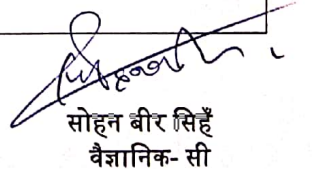 सोहन बीर सिहँ
वैज्ञानिक- सी